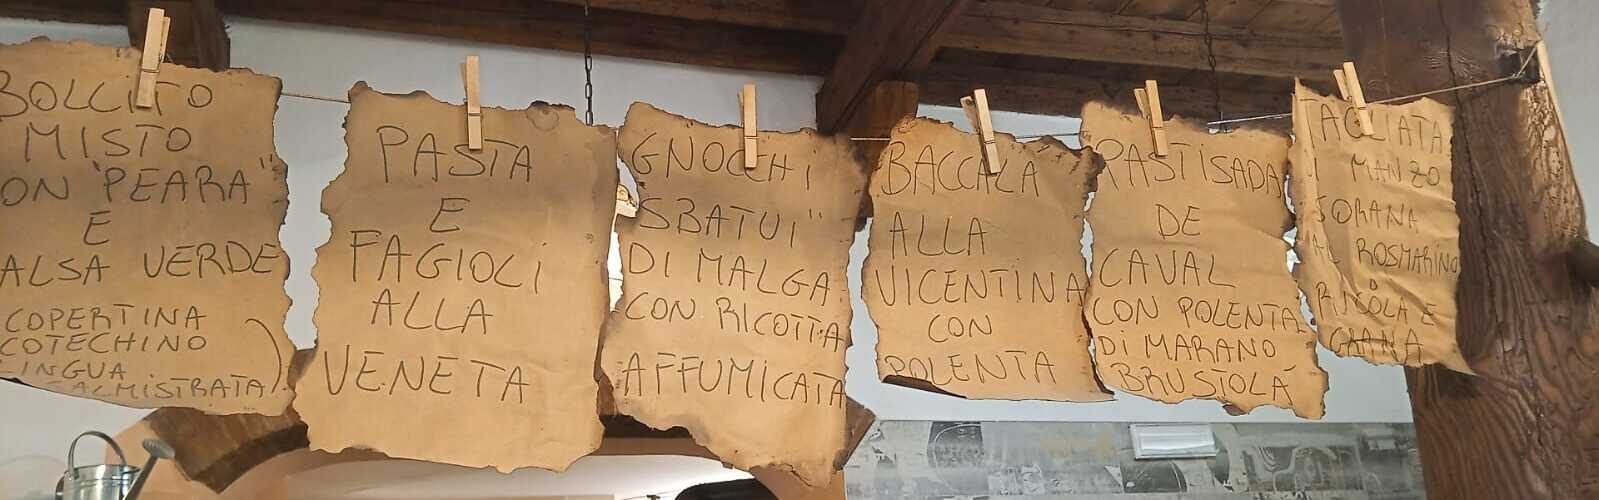 BOLLITO
MISTO
ON "PEARA"
E
ALSA VERDE
COPERTINA
COTECHINO
LINGUA
SALMISTRATA)
PASTA
E
FAGIOLI
ALLA
VENETA
GNOCCHI
"SBATUI"
DI MALGA
CON RICOTTA
AFFUMICATA
BACCALA
ALLA
VICENTINA
CON
POLENTA
PASTISADA
DE
CAVAL
CON POLENTA
DI MARANO
BRUSTOLÁ
TAGLIATA
DI MANZO
SORANA
AL ROSMARINO
RUCOLA E
GRANA